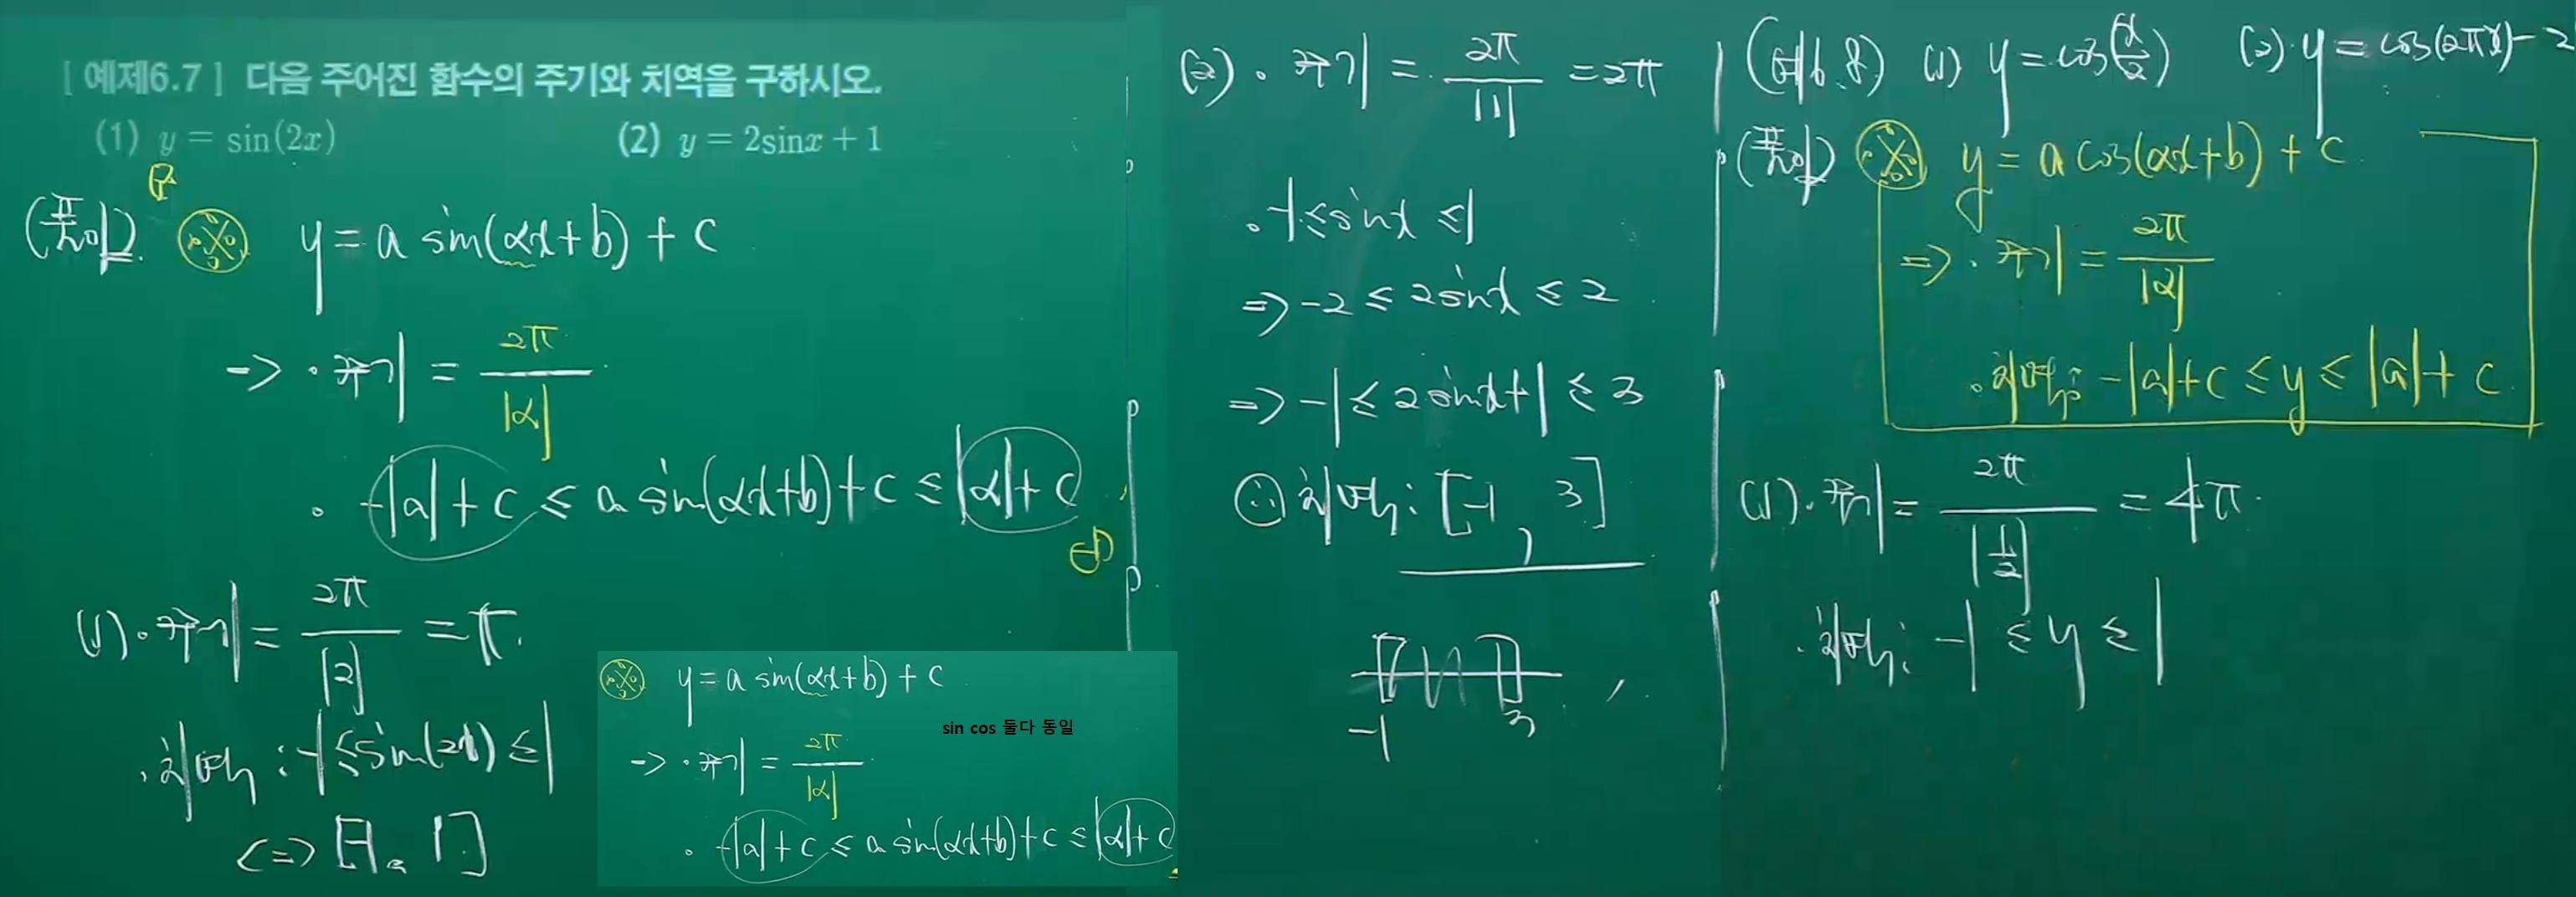 [ 예제6.7 ] 다음 주어진 함수의 주기와 치역을 구하시오.
(1) y = sin(2x) (2) y = 2sinx + 1
(풀이)
y = a sin(αx+b) + c
→ · 주기 = 2π/|α|
· -|a| + c ≤ a sin(αx+b) + c ≤ |α| + c
(1) · 주기 = 2π/|2| = π.
· 치역 : -1 ≤ sin(2x) ≤ 1
<=> [-1, 1]
y = a sin(αx+b) + c
sin cos 둘다 동일
→ · 주기 = 2π/|α|
· -|a| + c ≤ a sin(αx+b) + c ≤ |α| + c
(2) · 주기 = 2π/|1| = 2π
· -1 ≤ sinx ≤ 1
=> -2 ≤ 2sinx ≤ 2
=> -1 ≤ 2sinx+1 ≤ 3
∴ 치역 : [-1, 3]
-1 3
(예6.8) (1) y = cos(x/2) (2) y = cos(2πx) - 2
(풀이) y = a cos(αx+b) + c
=> · 주기 = 2π/|α|
· 치역 : -|a|+c ≤ y ≤ |a|+c
(1) · 주기 = 2π/|1/2| = 4π.
· 치역 : -1 ≤ y ≤ 1